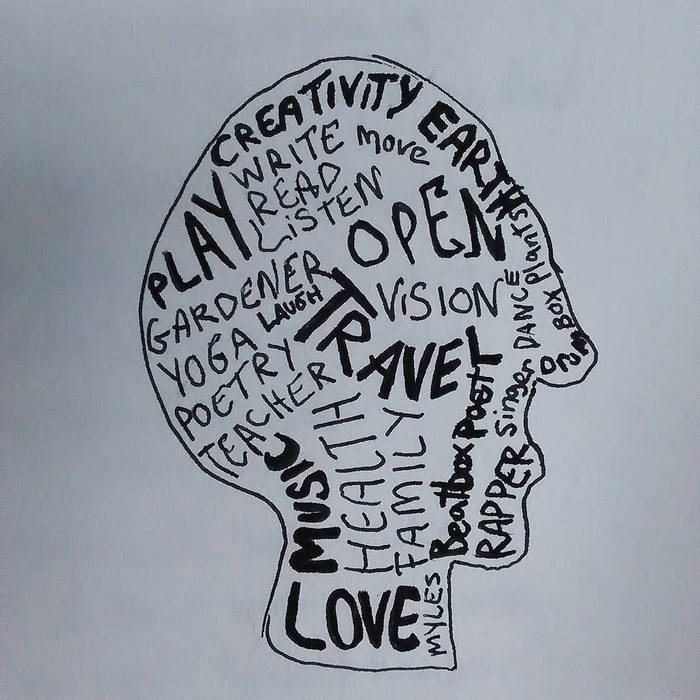 CREATIVITY
EARTH
WRITE
move
READ
LISTEN
PLAY
OPEN
plants
GARDENER
LAUGH
TRAVEL
VISION
DANCE
Drum BOX
YOGA
POETRY
TEACHER
MUSIC
HEALTH
FAMILY
Beatbox
Poet
singer
RAPPER
LOVE
MYLES